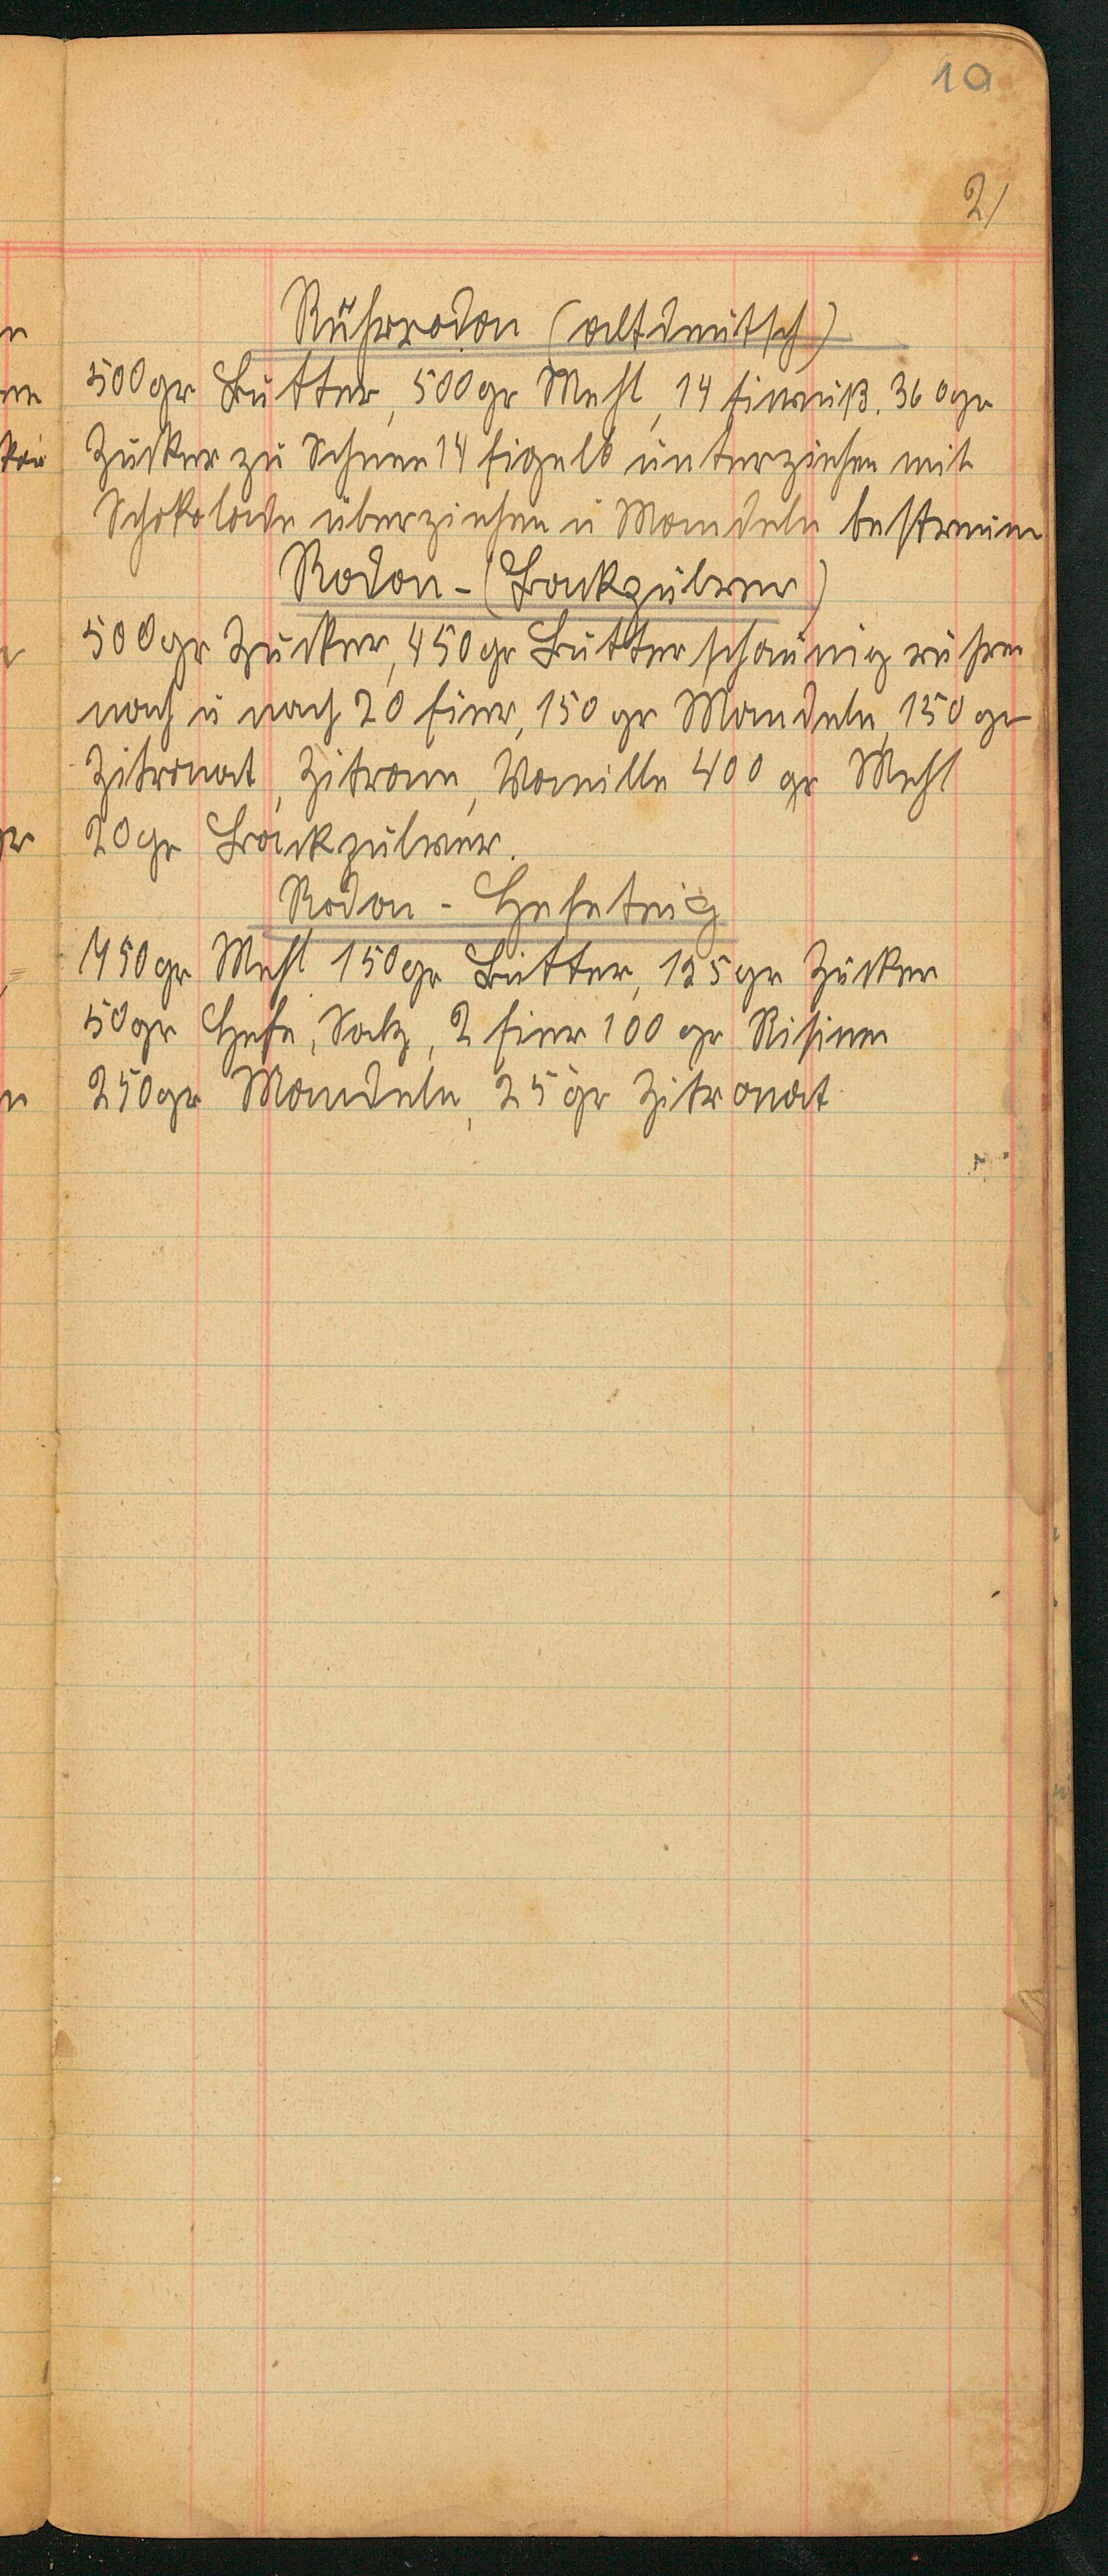 10
2/
Rührrodon (altdeutsch)
500gr Butter, 500gr Mehl, 14 Eiweiß. 360gr
Zucker zu Schnee 14 Eigelb unterziehen mit
Schokolade überziehen u Mandeln bestreuen
Rodon - (Backpulver)
500gr Zucker, 450gr Butter schaumig rühren
nach u nach 20 Eier, 150 gr Mandeln, 150 gr
Zitronat, Zitrone, Vanille 400 gr Mehl
20gr Backpulver.
Rodon - Hefeteig
450gr Mehl 150gr Butter, 125gr Zucker
50gr Hefe, Salz, 2 Eier 100 gr Risinen
250gr Mandeln, 25 gr Zitronat